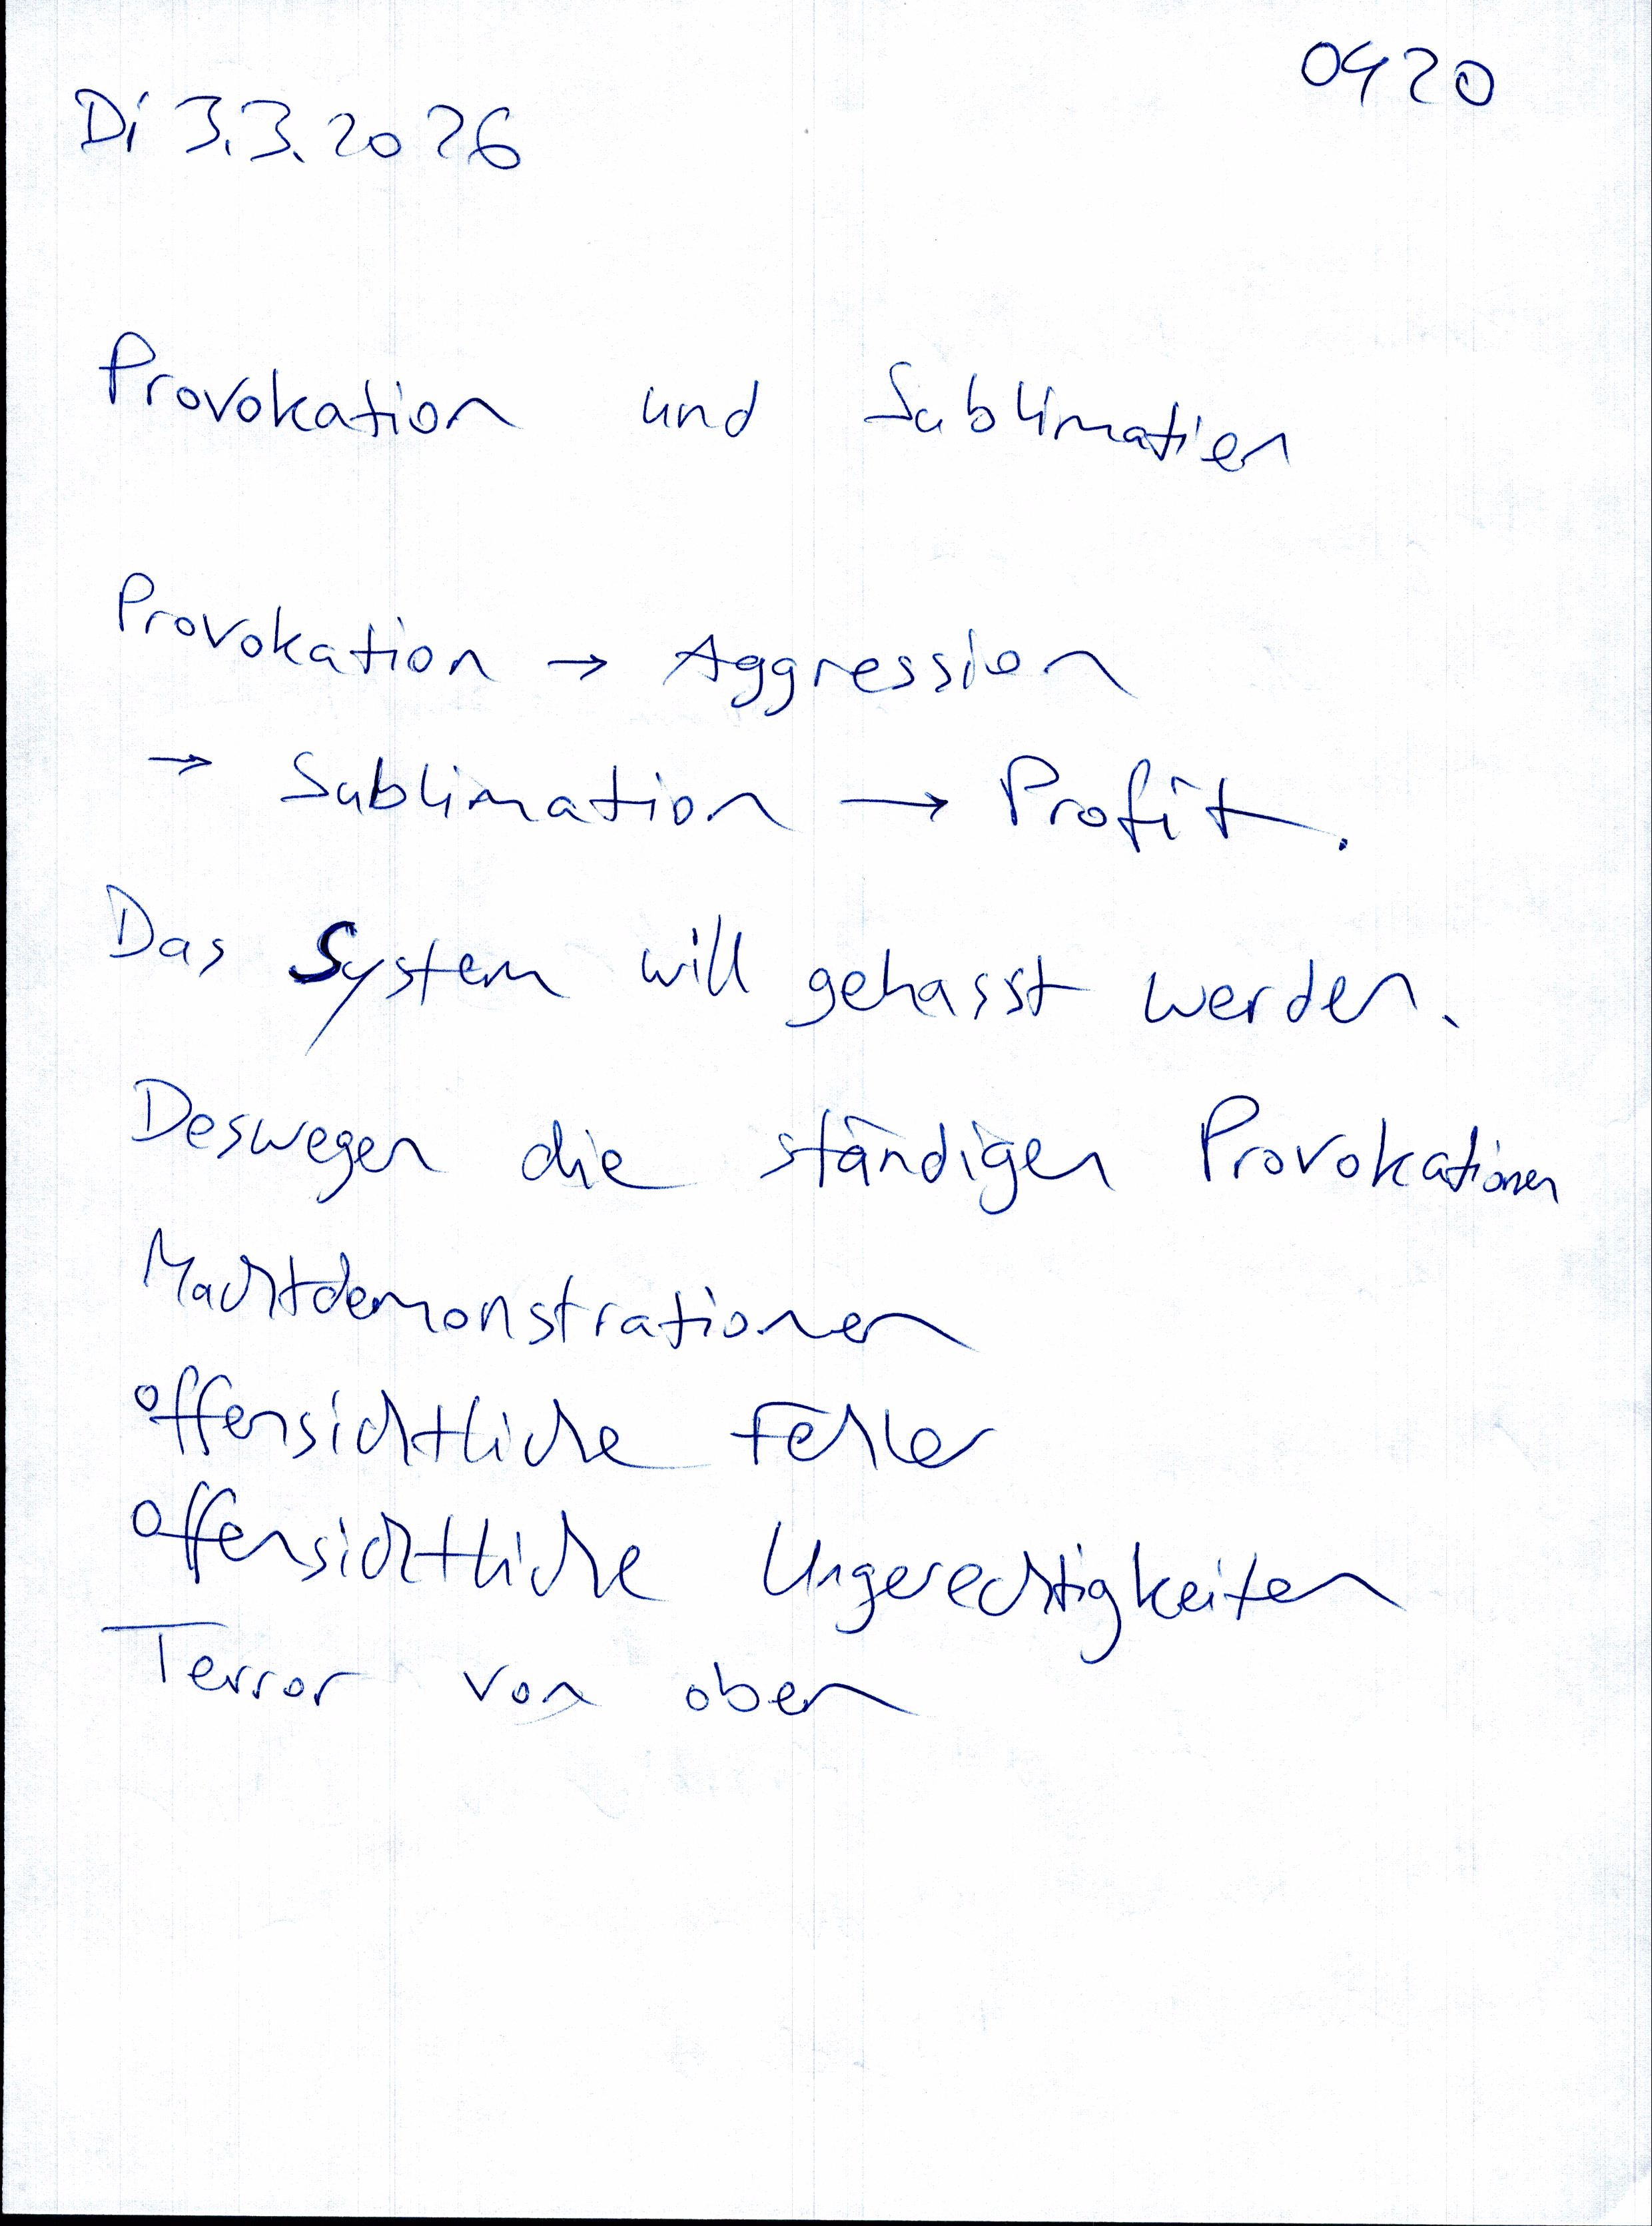 0420
Di 3.3.2026
Provokation und Sublimation
Provokation → Aggression
→ Sublimation → Profit.
Das System will gehasst werden.
Deswegen die ständigen Provokationen
Machtdemonstrationen
offensichtliche Fehler
offensichtliche Ungerechtigkeiten
Terror von oben